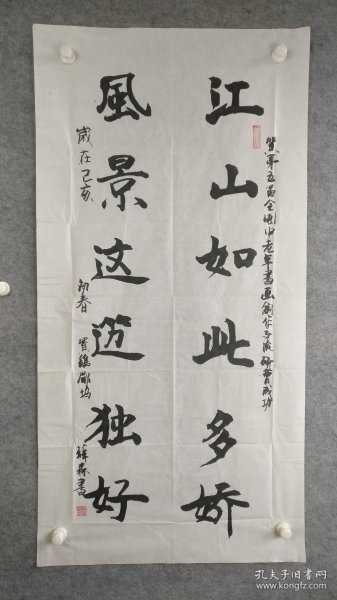 江山如此多娇
风景这边独好
贺第五届全国中老年书画创作交流研赛成功
岁在己亥
初春
书
孔夫子旧书网